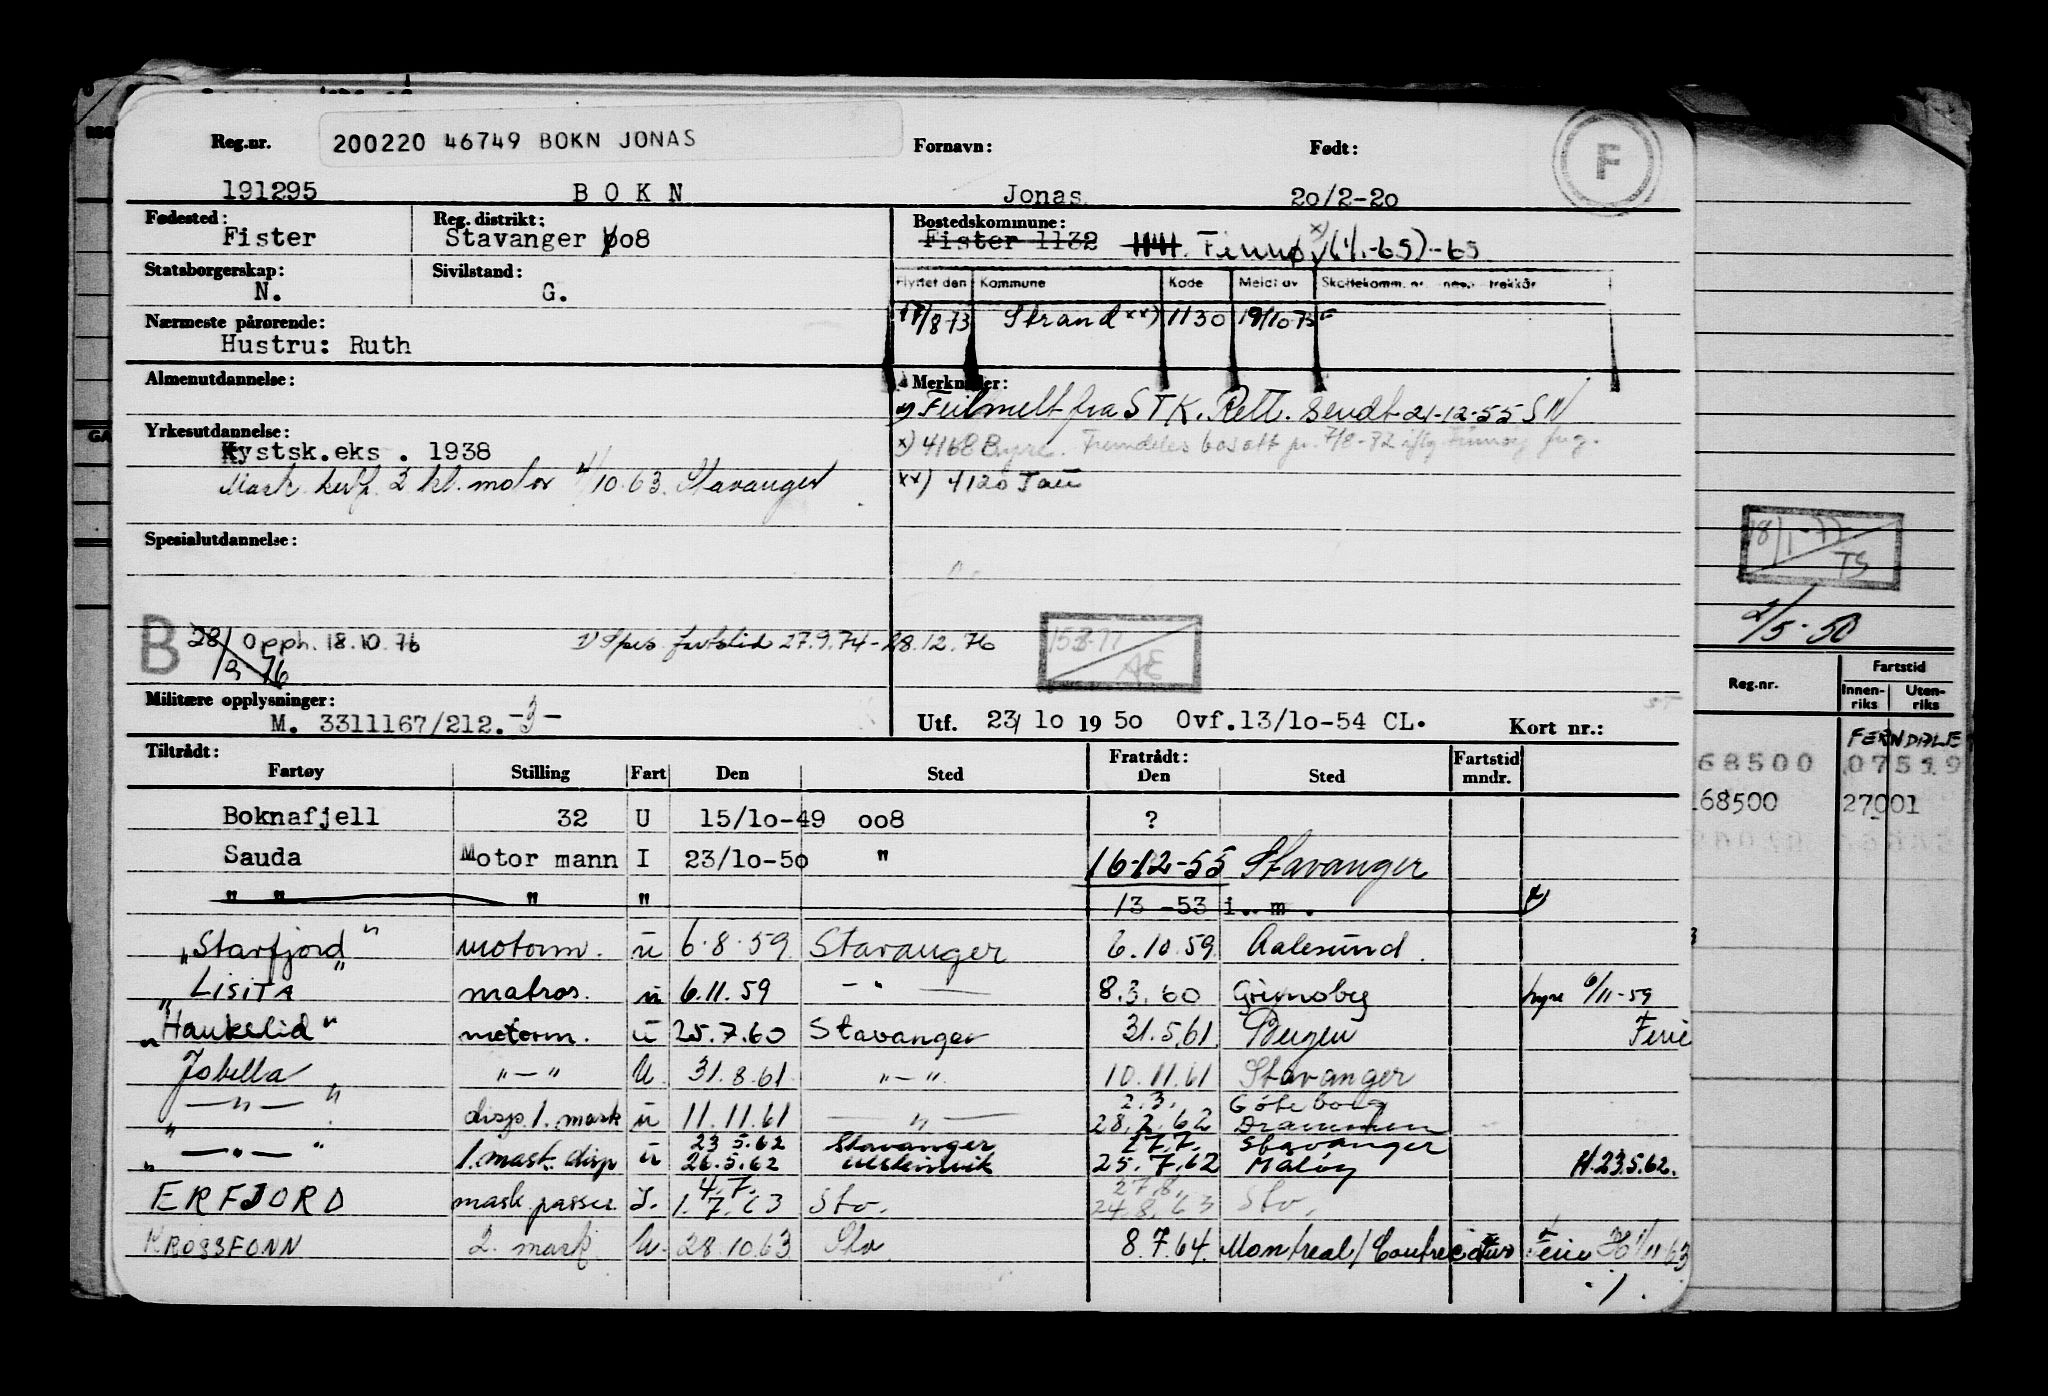 Reg.nr. 200220 46749 BOKN JONAS Fornavn: Født: F
191295 BOKN Jonas 20/2-20
Fødested: Reg. distrikt: Bostedskommune:
Fister Stavanger 008 Fister 1132 1141. Finnøy (1/1-65)-65
Statsborgerskap: Sivilstand:
N. G.
Flyttet den Kommune Kode Meldt av Skattekomm.
Nærmeste pårørende: 17/8 73 Strand xx) 1130 19/10 73
Hustru: Ruth
Almenutdannelse: Merknader:
x) Feilmelt fra STK. Rett. sendt 21-12-55 SN
Yrkesutdannelse: x) 4168 Byre. Fremdeles bosatt pr. 7/8-72 iflg Finnøy
Kystsk.eks . 1938
Mask. 2 kl. motor 4/10.63. Stavanger xx) 4120 Tau
Spesialutdannelse:
B 28/9-76 Opph. 18.10.76 1) fartstid 27.9.74-28.12.76 AE
Militære opplysninger:
M. 3311167/212. -3- Utf. 23/10 1950 Ovf.13/10-54 CL. Kort nr.:
Tiltrådt: Fratrådt: Fartstid
Fartøy Stilling Fart Den Sted Den Sted mndr.
Boknafjell 32 U 15/10-49 008 ?
Sauda Motor mann I 23/10-50 " 16-12-55 Stavanger
" " " " /3 -53 i. m. x)
"Starfjord" motorm. u 6.8.59 Stavanger 6.10.59 Aalesund.
"LISITA" matros. u 6.11.59 - " - 8.3.60 Grimsby hyre 6/11-59
"Haukelid" motorm. u 25.7.60 Stavanger 31.5.61 Bergen Ferie
Jobella " - " U 31.8.61 " - " 10.11.61 Stavanger
- " - " disp 1. mask u 11.11.61 - " - 2.3. 28.2.62 Göteborg Drammen
" - " - " 1. mask. disp u 23.5.62 26.5.62 Stavanger Ulsteinvik 27.7. 25.7.62 Stavanger Måløy H.23.5.62.
ERFJORD mask passer I. 4.7. 1.7.63 Stv. 27.8. 24.8.63 Stv.
KROSSFONN 2. mask U. 28.10.63 Stv 8.7.64. Montreal/Contrecoeur Ferie 11.63
./.
18/1-77 TS
2/5-50
Reg.nr. Fartstid
Innen-riks Uten-riks
FERNDALE
68500 07519
168500 27001